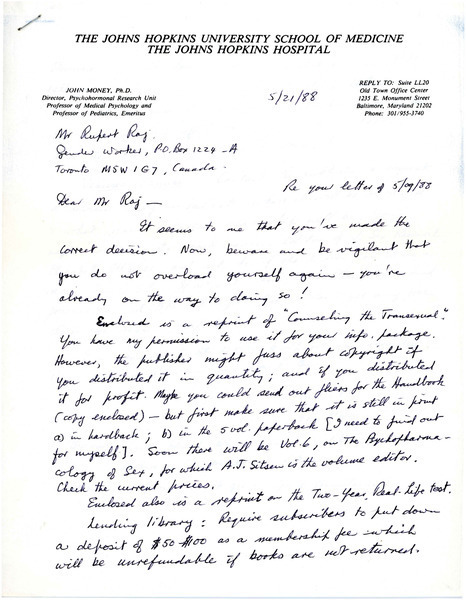 THE JOHNS HOPKINS UNIVERSITY SCHOOL OF MEDICINE
THE JOHNS HOPKINS HOSPITAL
JOHN MONEY, Ph.D.
Director, Psychohormonal Research Unit
Professor of Medical Psychology and
Professor of Pediatrics, Emeritus
5/21/88
REPLY TO: Suite LL20
Old Town Office Center
1235 E. Monument Street
Baltimore, Maryland 21202
Phone: 301/955-3740
Mr Rupert Raj
Gender Worker, P.O. Box 1224-A
Toronto M5W 1G7, Canada.
Re your letter of 5/09/88
Dear Mr Raj—
It seems to me that you've made the
correct decision. Now, beware and be vigilant that
you do not overload yourself again — you're
already on the way to doing so!
Enclosed is a reprint of "Counseling the Transexual."
You have my permission to use it for your info. package.
However, the publisher might fuss about copyright if
you distributed it in quantity; and if you distributed
it for profit. Maybe you could send out fliers for the Handbook
(copy enclosed) — but first make sure that it is still in print
a) in hardback; b) in the 5 vol. paperback [I need to find out
for myself]. Soon there will be Vol. 6, on The Psychopharma-
cology of Sex, for which A.J. Sitsen is the volume editor.
Check the current prices.
Enclosed also is a reprint on the Two-Year, Real-Life Test.
Lending library: Require subscribers to put down
a deposit of $50-$100 as a membership fee — which
will be unrefundable if books are not returned.